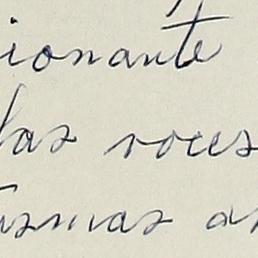 ionante
las voces
ismas an